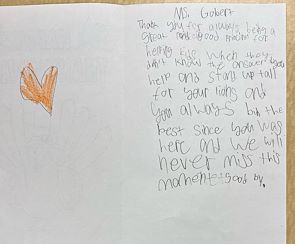 Ms. Gobert
Thank you for always being a
great and good for
helping els. When they
didn't know the answer you
help and stand up tall
for your lions and
you always bin the
best since you was
here and we will
never miss this
moment good by.